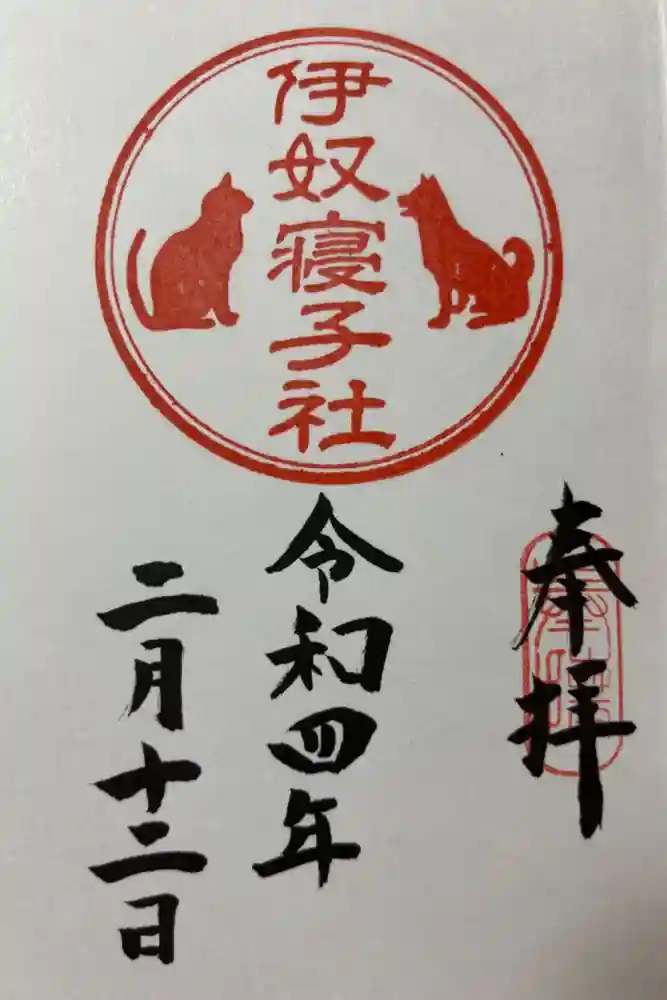 伊奴寝子社
奉拝
令和四年
二月十二日